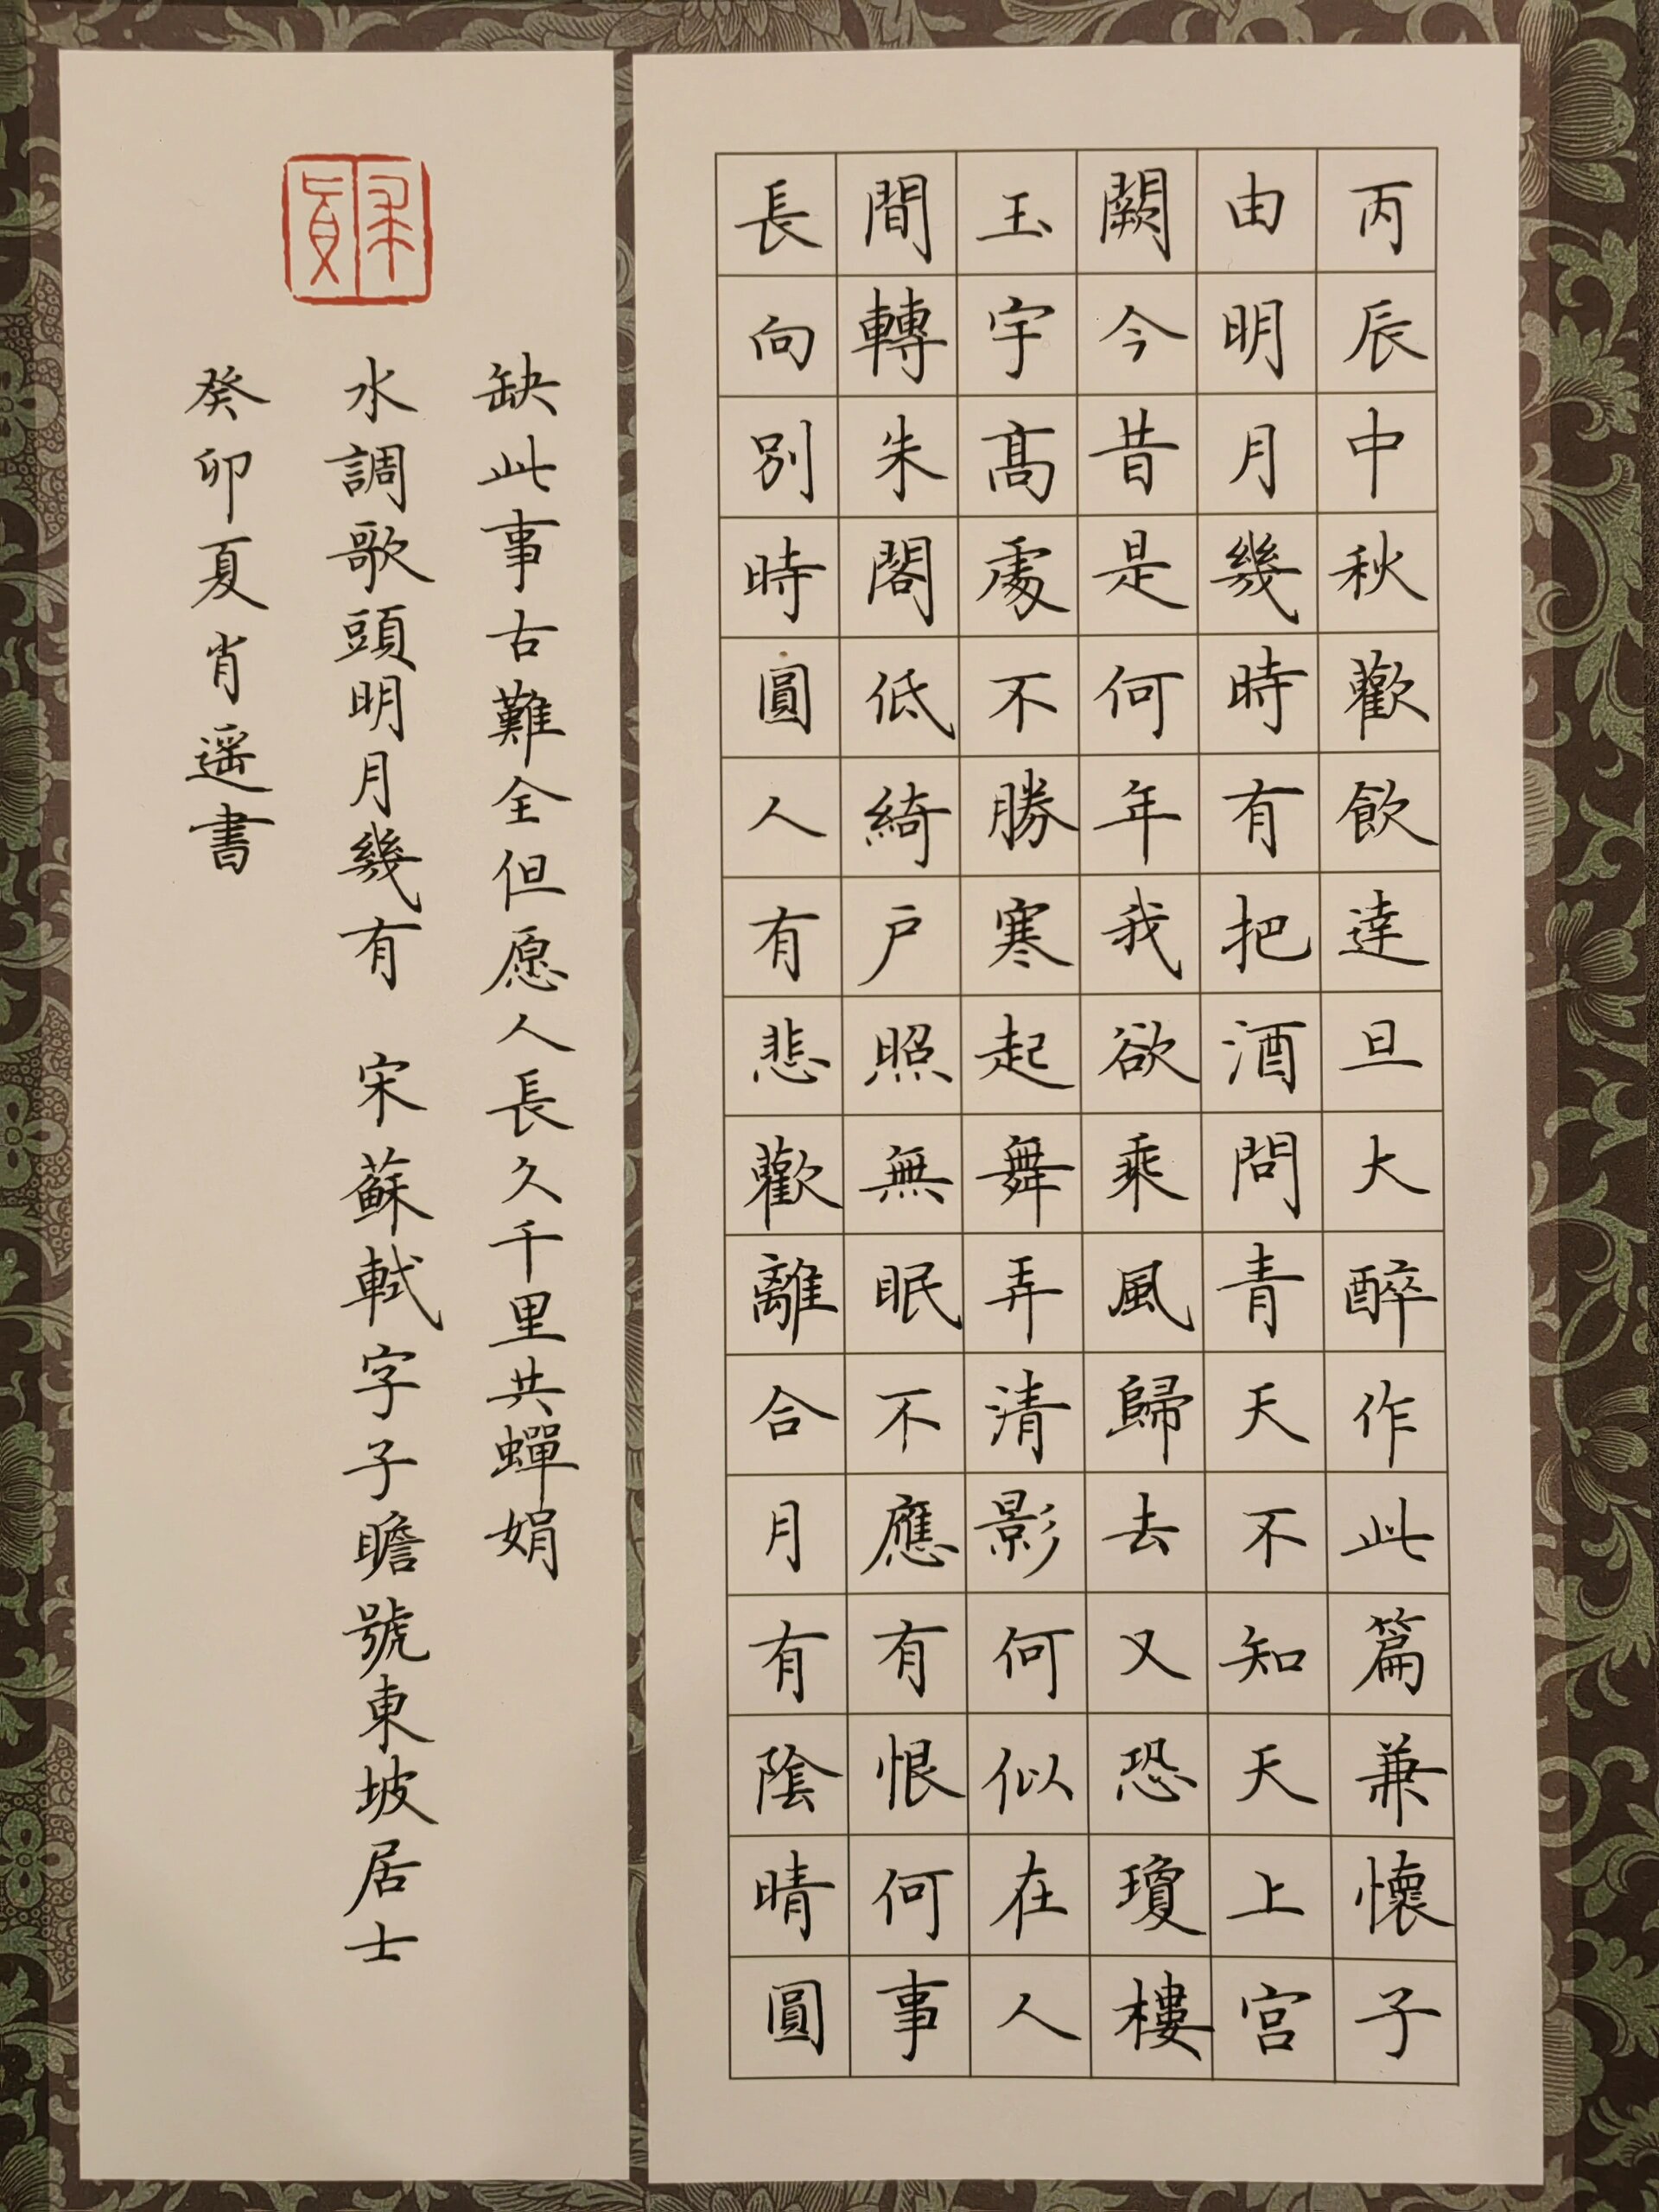 丙辰中秋歡飲達旦大醉作此篇兼懷子
由明月幾時有把酒問青天不知天上宫
闕今昔是何年我欲乘風歸去又恐瓊樓
玉宇髙處不勝寒起舞弄清影何似在人
間轉朱閣低綺户照無眠不應有恨何事
長向别時圓人有悲歡離合月有陰晴圓
缺此事古難全但愿人長久千里共蟬娟
水調歌頭明月幾有 宋蘇軾字子瞻號東坡居士
癸卯夏肖遥書